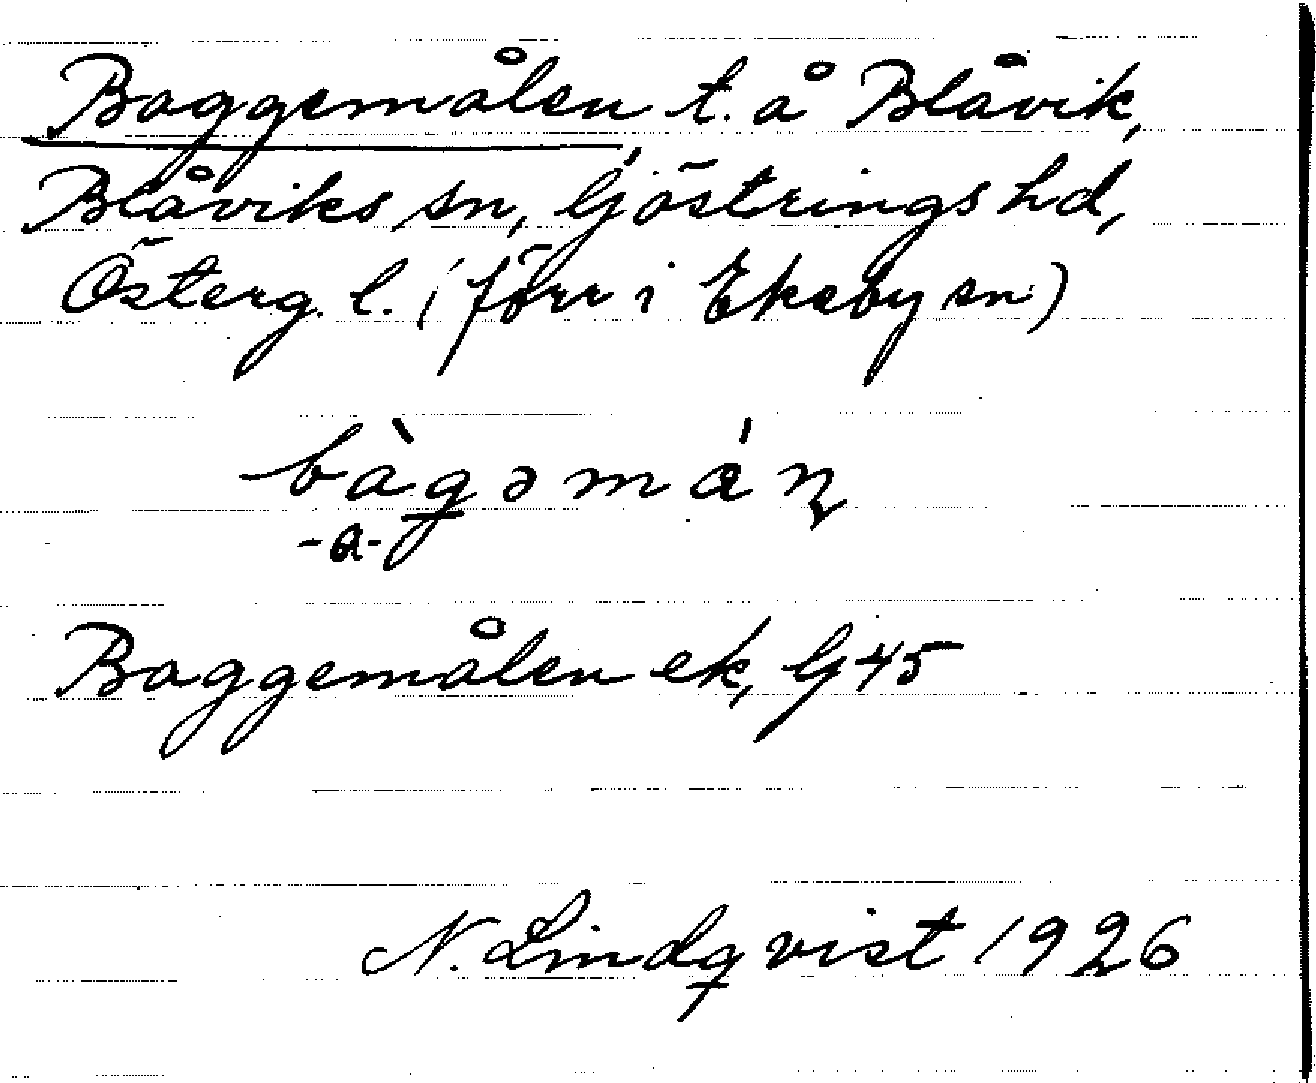 Baggemålen t. å Blåvik,
Blåviks sn, Göstrings hd,
Österg. l. (förr i Ekeby sn)
bàgəmán
-a-
Baggemålen ek, G 45
N. Lindqvist 1926